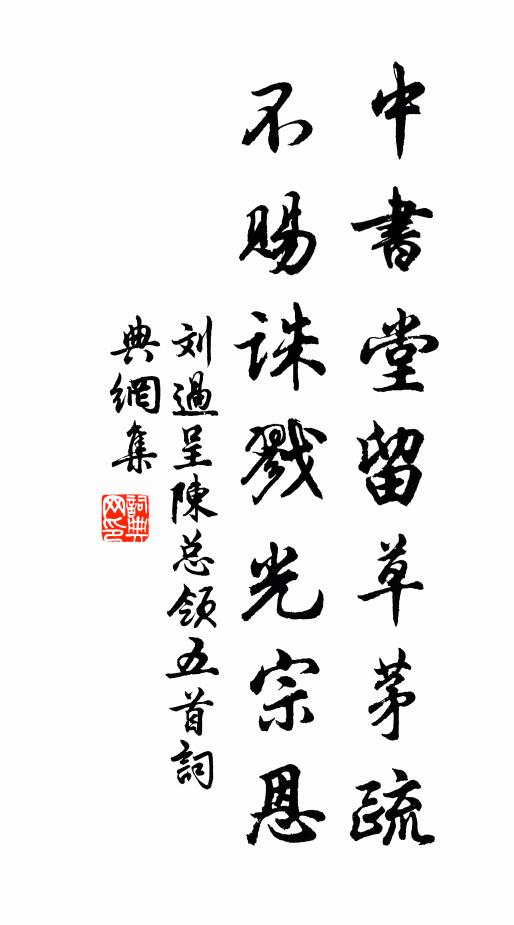 中書堂留草茅疏
不賜誅戮光宗恩
刘過呈陳总領五首詞
典網集
詞典网印